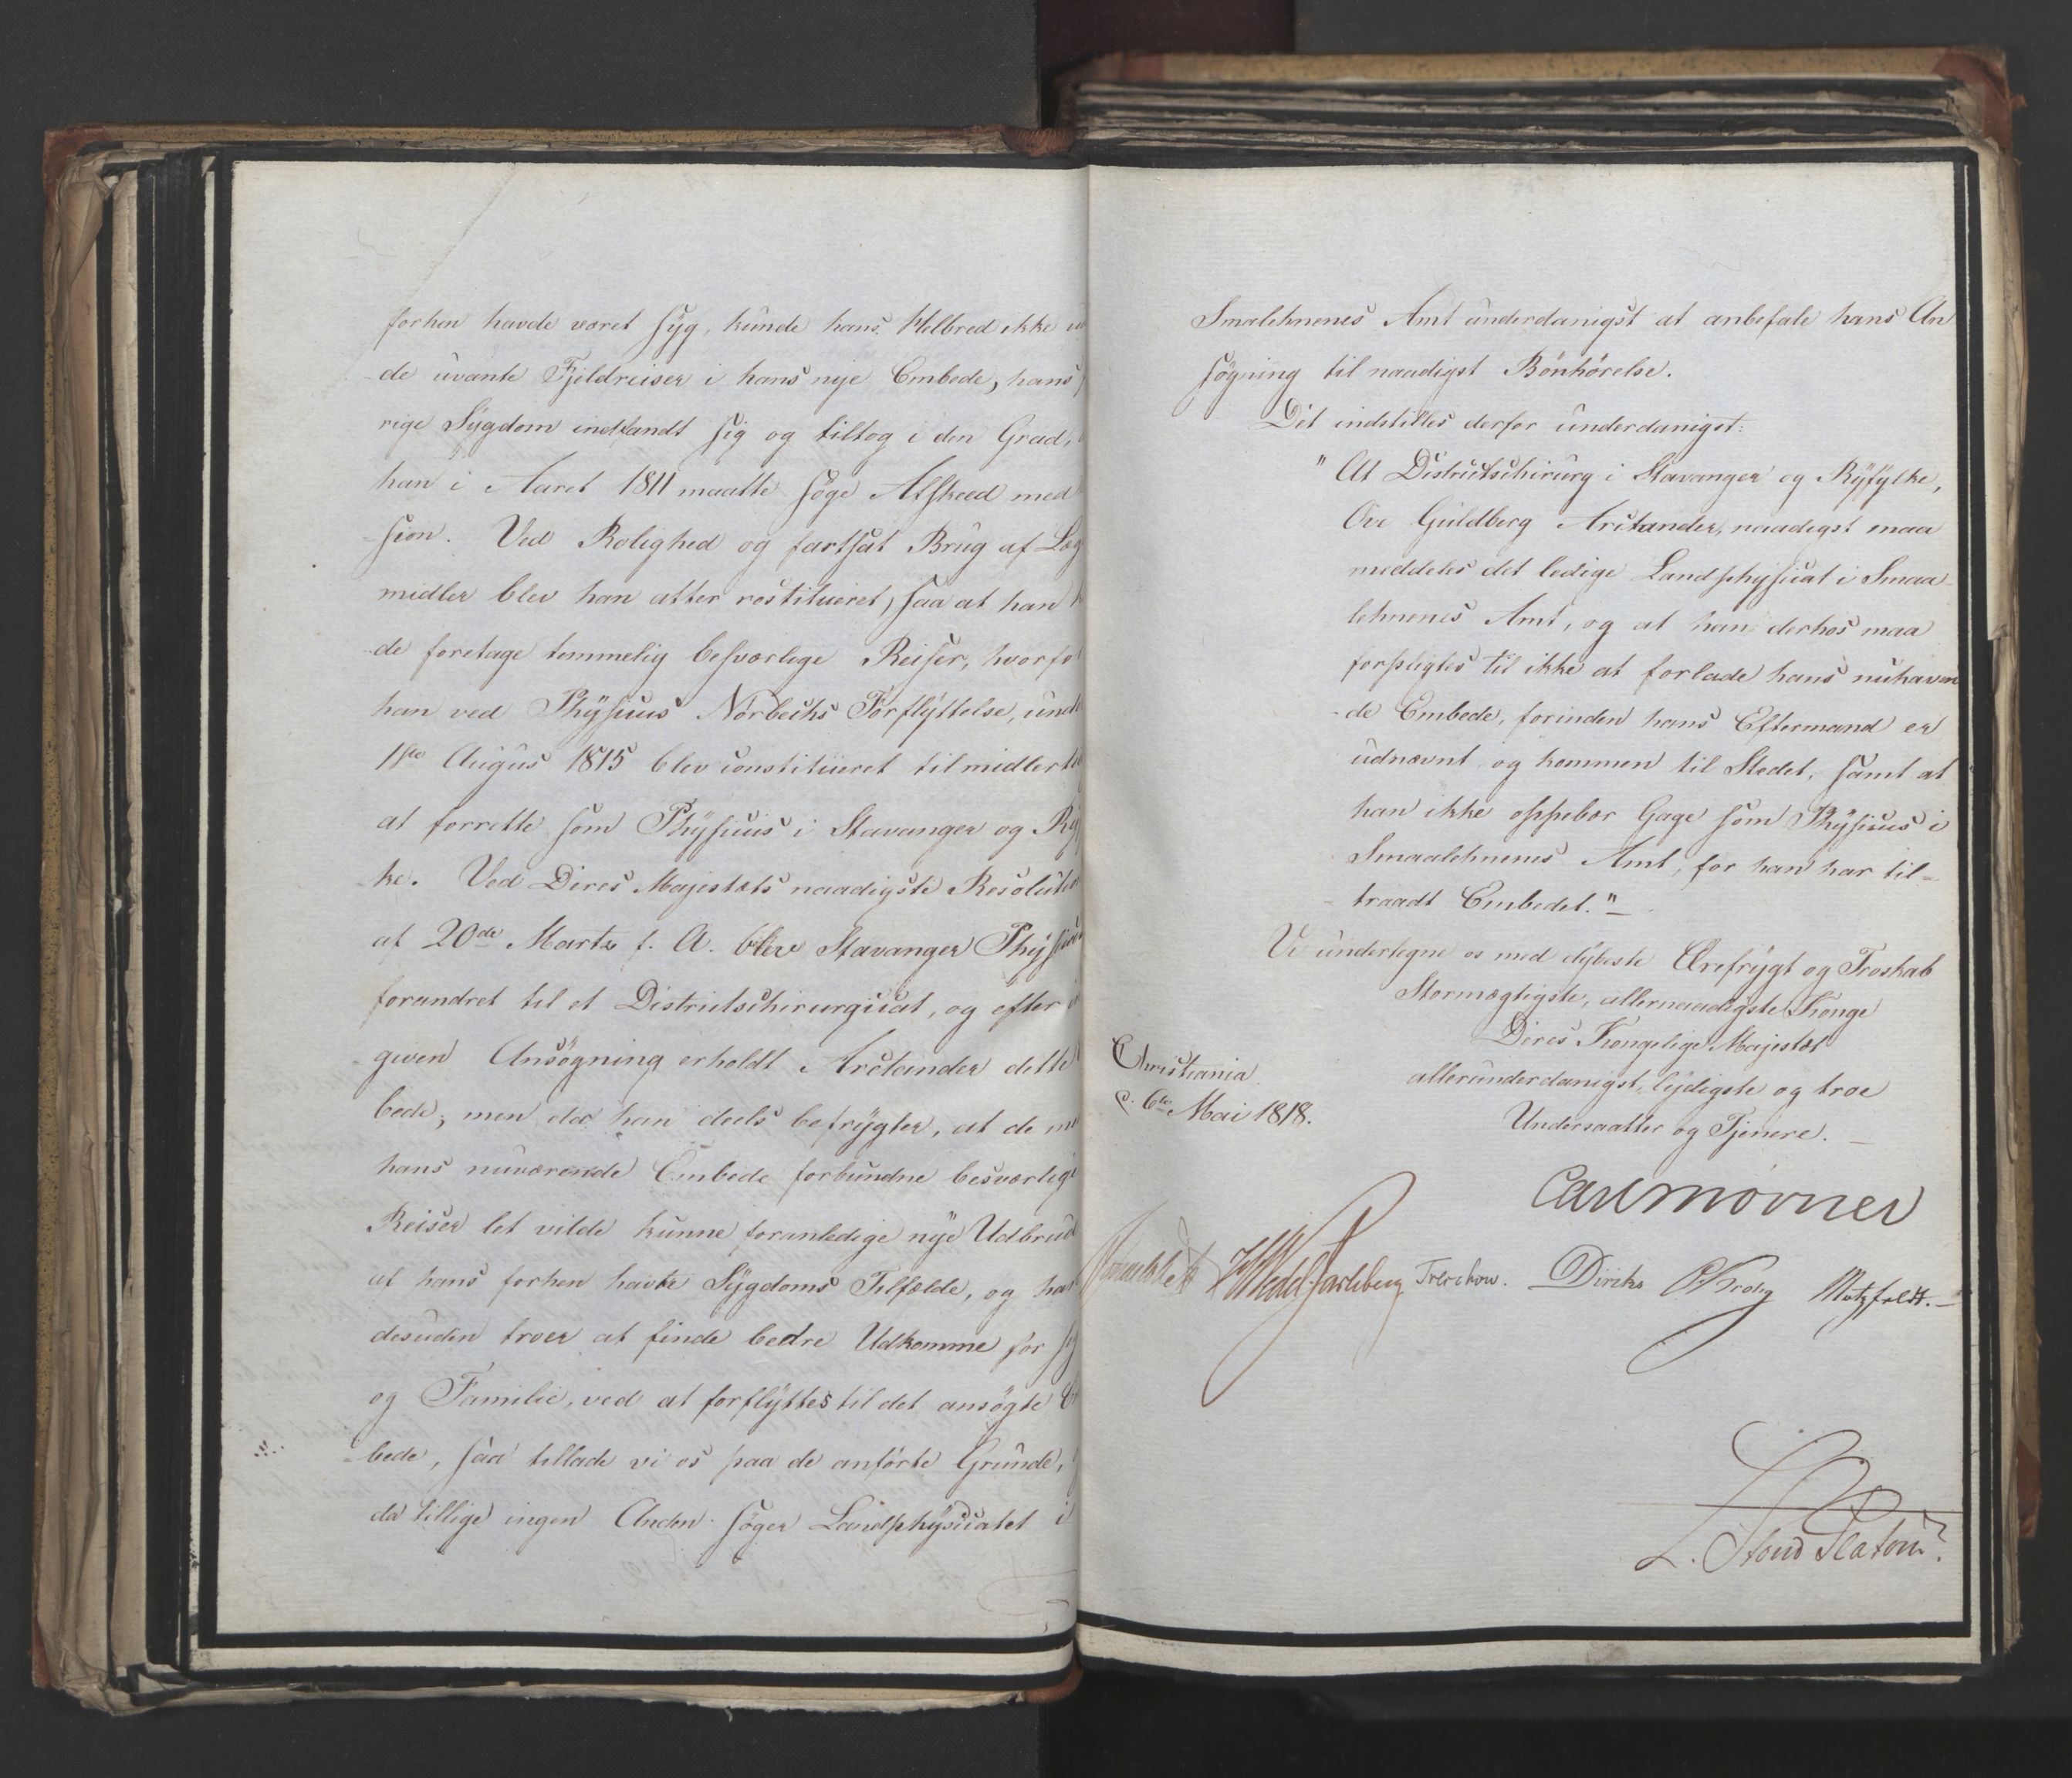 forhen havde været syg, kunde hans Helbred ikke
de uvante Fjeldreiser i hans nye Embede, hans
rige Sygdom indfandt sig og tiltog i den Grad,
han i Aaret 1811 maatte søge Afskeed med
sion. Ved Rolighed og fortsat Brug af Læg
midler blev han atter restitueret, saa at han
de foretage temmelig besværlige Reiser, hvorfo
han ved Physicus Norbechs Forflyttelse, und
1ste Augus 1815 blev constitueret til midlert
at forrette som Physicus i Stavanger og Ry
ke. Ved Deres Majestæts naadigste Resolution
af 20de Marts f. A. blev Stavanger Physica
forandret til et Districtschirurgicat, og efter
given Ansøgning erholdt Arctander dette
bede; men da han deels befrygter, at de
hans nuværende Embede forbundne besværlige
Reiser let vilde kunne foranledige nye Udbrud
af hans forhen havte Sygdoms Tilfælde, og han
desuden troer at finde bedre Udkomme for sig
og Familie, ved at forflyttes til det ansøgte Em
bede, saa tillade vi os paa de anførte Grunde,
da tillige ingen Anden søger Landphysicatet i
Smaalehnenes Amt underdanigst at anbefale hans An
søgning til naadigst Bönhörelse.
Det indstilles derfor underdanigst:
"At Districtschirurg i Stavanger og Ryfylke,
Ove Guldberg Arctander, naadigst maa
meddeles det ledige Landphysicat i Smaa-
lehnenes Amt, og at han derhos maa
forpligtes til ikke at forlade hans nuhaven
-de Embede, forinden hans Eftermand er
udnævnt og kommen til Stedet, samt at
han ikke oppebær Gage som Physicus i
Smaalehnenes Amt, før han har til=
traadt Embedet."
Vi undertegne os med dybeste Ærefrygt og Troskab
Stormægtigste, allernaadigste Konge
Deres Kongelige Majestæt
allerunderdanigst, lydigste og troe
Undersaatter og Tjenere.
Christiania
d. 6te Mai 1818.
Carl Mörner
HWedel Jarlsberg Treschow. Diriks CKrohg Motzfeldt.
L. Stoud Platou.